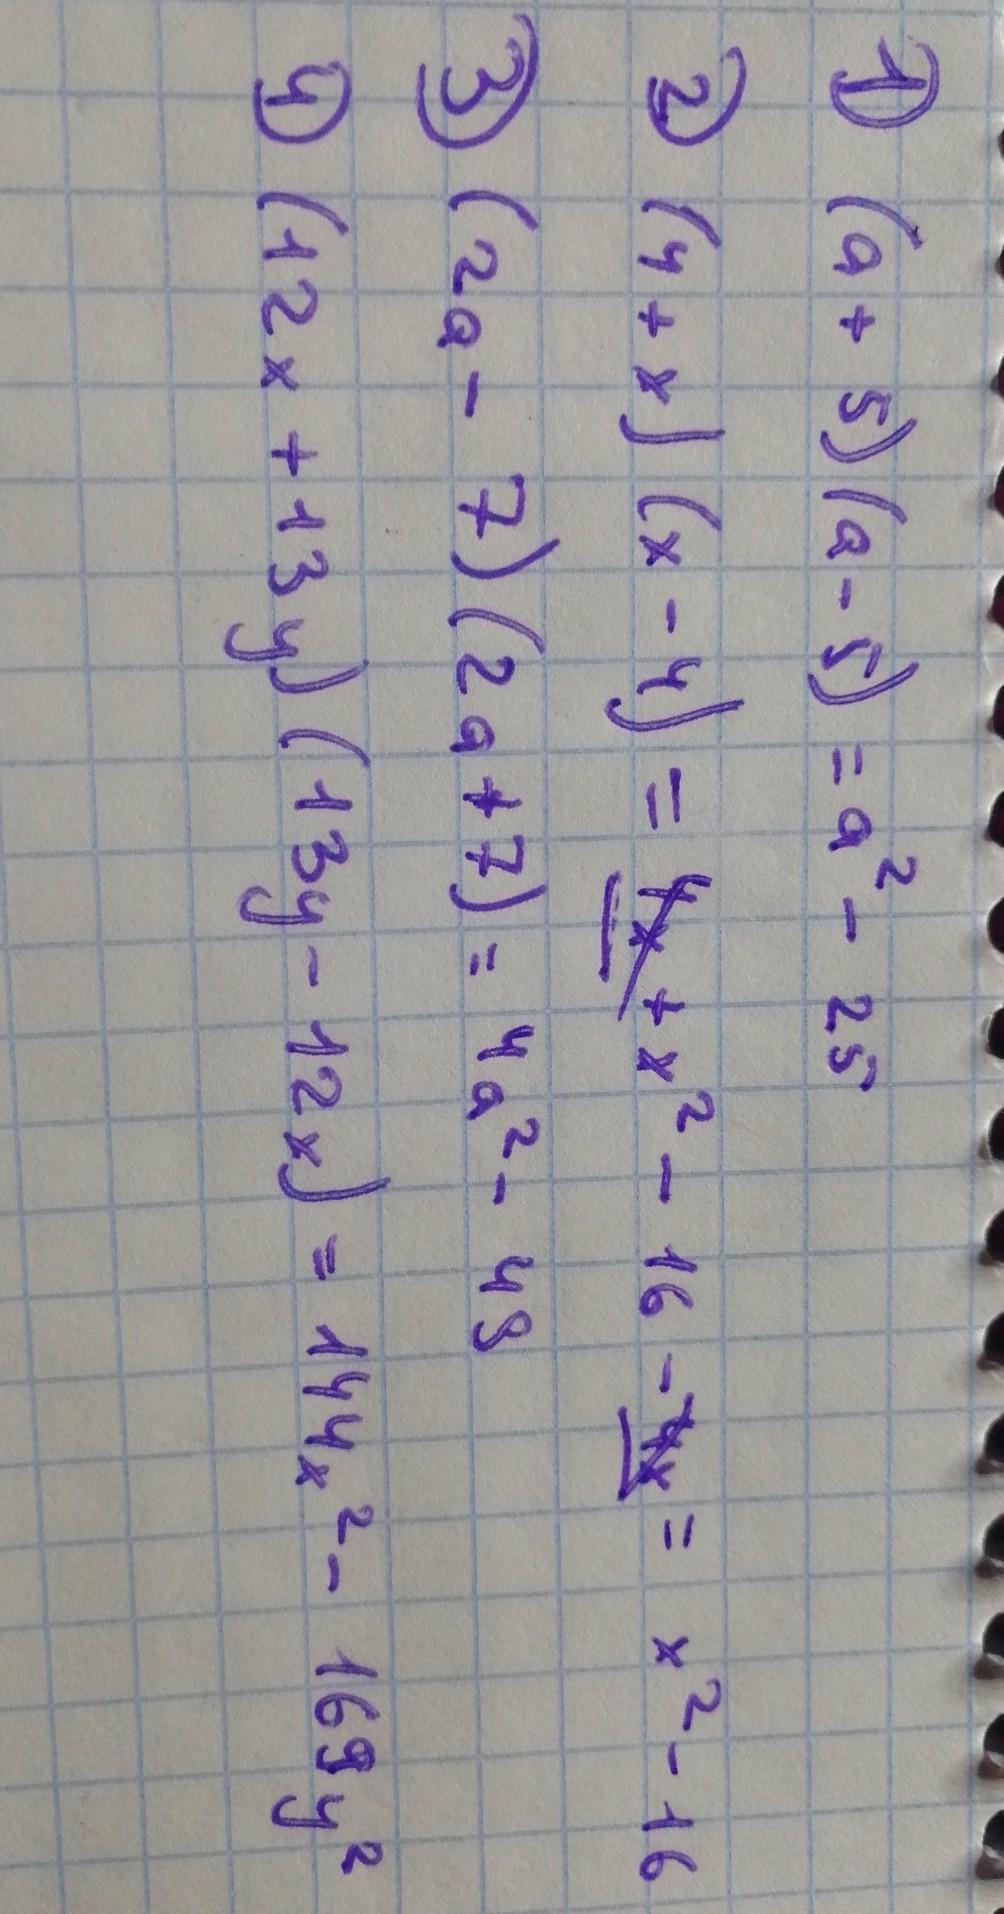 1) (a + 5) (a - 5) = a² - 25
2) (4 + x) (x - 4) = 4x + x² - 16 - 4x = x² - 16
3) (2a - 7) (2a + 7) = 4a² - 49
4) (12x + 13y) (13y - 12x) = 144x² - 169y²